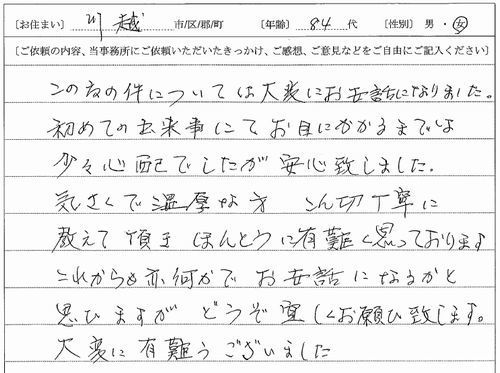 〔お住まい〕 川越 市/区/郡/町 〔年齢〕 84 代 〔性別〕 男・女
〔ご依頼の内容、当事務所にご依頼いただいたきっかけ、ご感想、ご意見などをご自由にご記入ください〕
この度の件については大変にお世話になりました。
初めての出来事にてお目にかかるまでは
少々心配でしたが安心致しました。
気さくで温厚な方 こん切丁寧に
教えて頂き ほんとうに有難く思っております
これからも亦何かでお世話になるかと
思ひますが どうぞ宜しくお願ひ致します。
大変に有難うございました